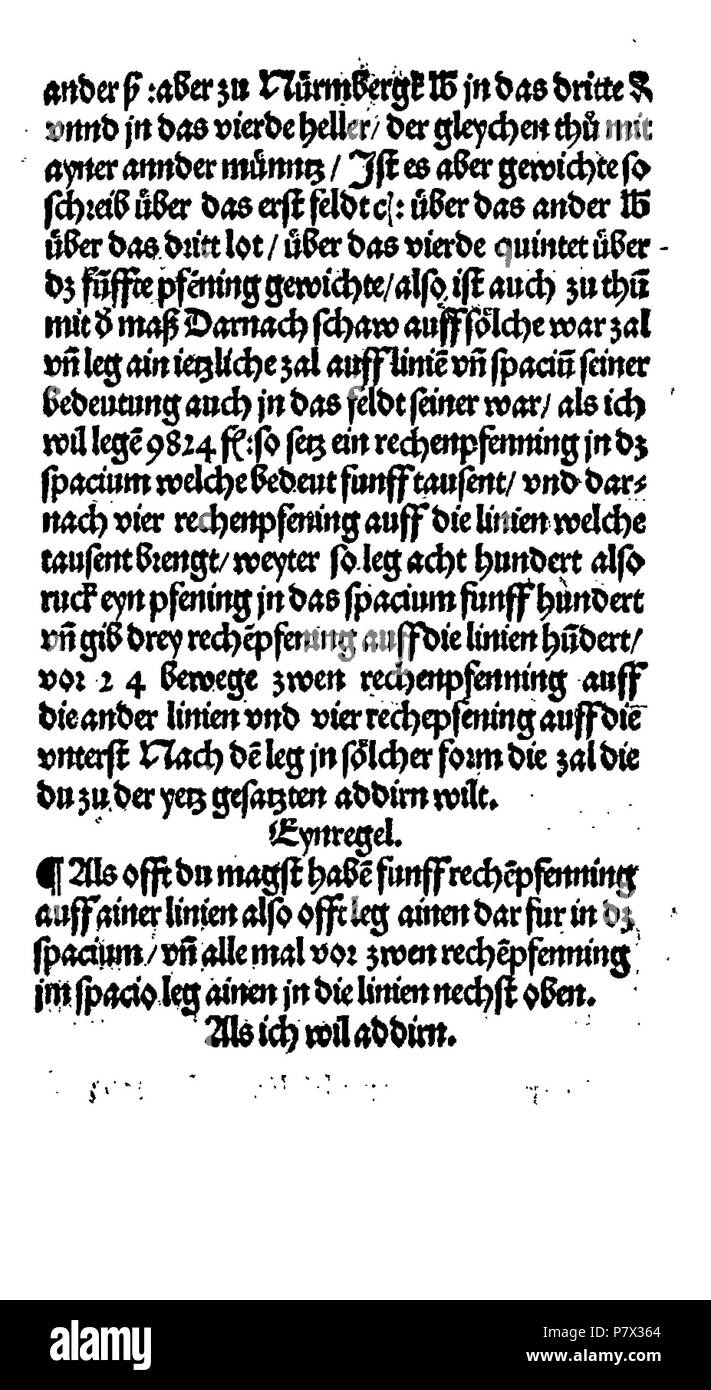 ander ꝑ̃ :aber zu Nürmbergk ℔ jn das dritte ₰
vnnd jn das vierde heller/ der gleychen thů mit
ayner annder münntz/ Jst es aber gewichte so
schreib über das erst feldt cʃ: über das ander ℔
über das dritt lot/ über das vierde quintet über
dz fũffte pfening gewichte/also ist auch zu thũ
mit ð maß Darnach schaw auff sölche war zal
vñ leg ain ietzliche zal auff liniẽ vñ spaciũ seiner
bedeutung auch jn das feldt seiner war/ als ich
wil legẽ 9824 fl:so setz ein rechenpfenning jn dz
spacium welche bedeut funff tausent/ vnd dar⸗
nach vier rechenpfening auff die linien welche
tausent brengt/ weyter so leg acht hundert also
ruck eyn pfening jn das spacium funff hundert
vñ gib drey rechẽpfenung auff die linien hũdert/
vor 2 4 bewege zwen rechenpfenning auff
die ander linien vnd vier rechepfening auff diẽ
vnterst Nach dẽ leg jn sölcher form die zal die
du zu der yetz gesatzten addirn wilt.
Eynregel.
¶ Als offt du magst habẽ funff rechẽpfenning
auff ainer linien also offt leg ainen dar fur in dz
spacium/ vñ alle mal vor zwen rechẽpfenning
jm spacio leg ainen jn die linien nechst oben.
Als ich wil addirn.
alamy
Image ID: P7X364
www.alamy.com